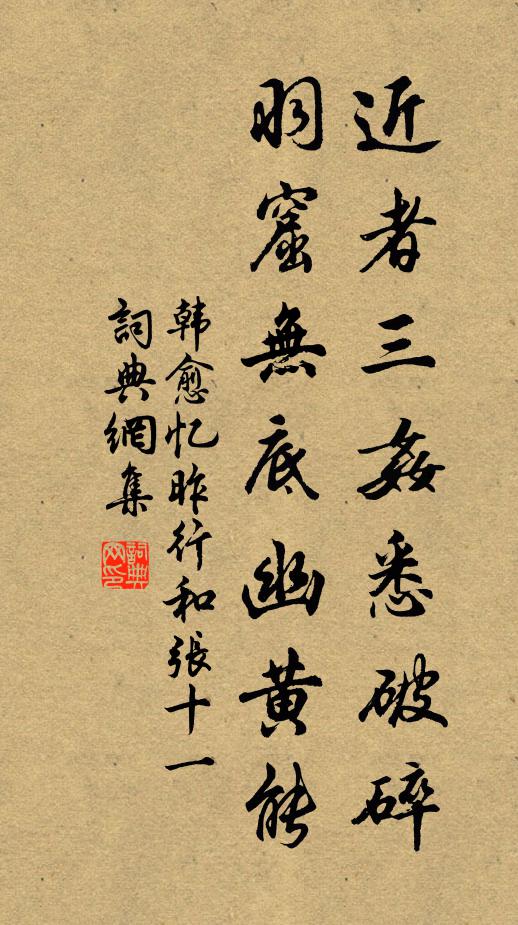 近者三姦悉破碎
羽窟無底幽黄能
韩愈忆昨行和張十一
詞典網集
詞典網印